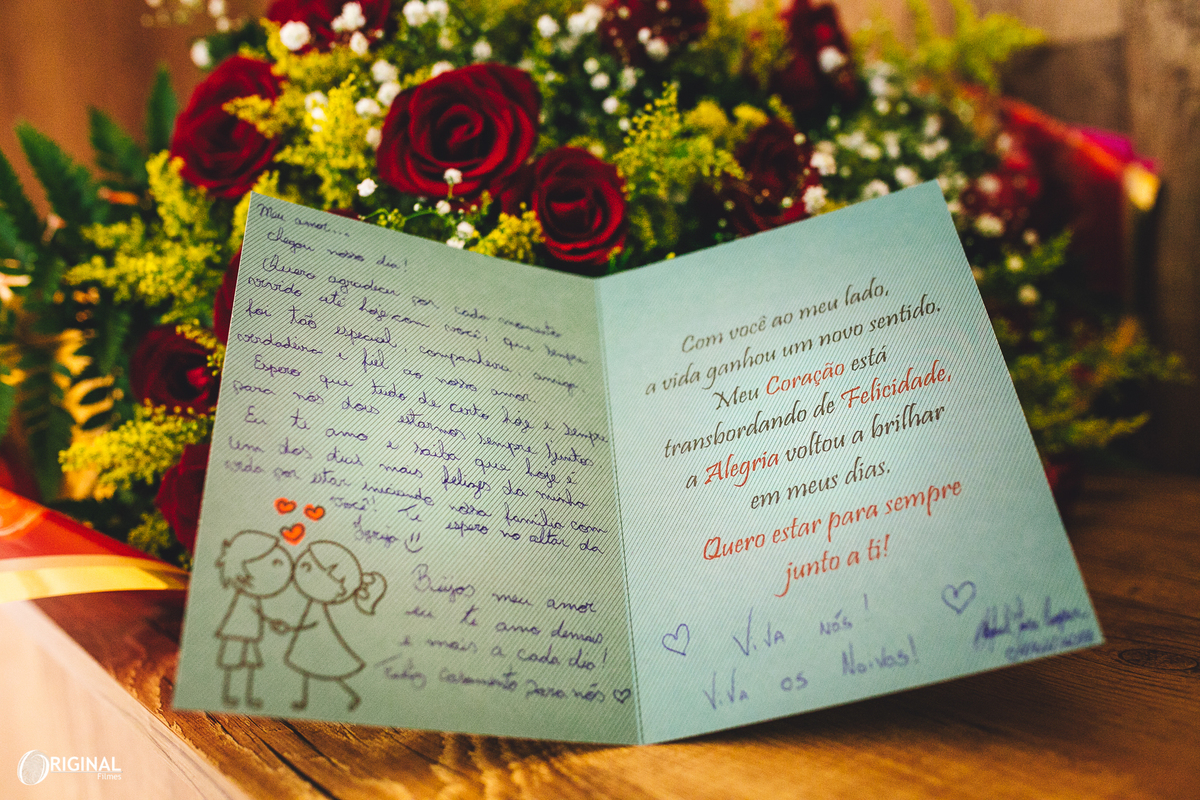 Meu amor...
chegou nosso dia!
Quero agradecer por cada momento
vivido até hoje com você, que sempre
foi tão especial, companheiro, amigo,
verdadeiro e fiel ao nosso amor.
Espero que tudo de certo hoje e sempre
para nós dois estarmos sempre juntos
Eu te amo e saiba que hoje é
um dos dias mais felizes da minha
vida por estar iniciando nossa família com
você! Te espero no altar da
Igreja
Beijos meu amor
eu te amo demais
e mais a cada dia!
Feliz casamento para nós
Com você ao meu lado,
a vida ganhou um novo sentido.
Meu Coração está
transbordando de Felicidade,
a Alegria voltou a brilhar
em meus dias.
Quero estar para sempre
junto a ti!
Viva nós!
Viva os Noivos!
ORIGINAL
Filmes